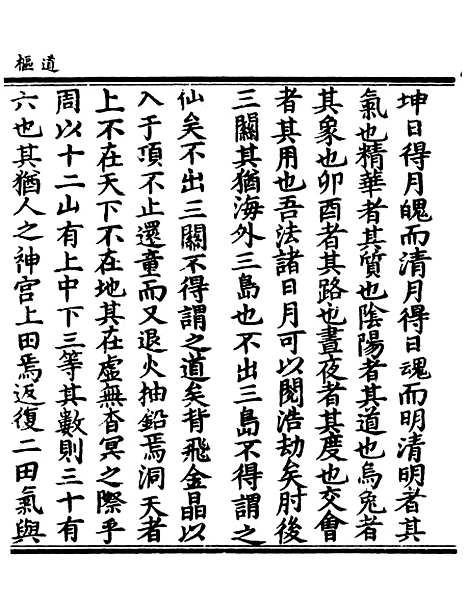 道樞
坤日得月魄而清月得日魂而明清明者其
氣也精華者其質也陰陽者其道也烏兔者
其象也卯酉者其路也晝夜者其度也交會
者其用也吾法諸日月可以閱浩劫矣肘後
三關其猶海外三島也不出三島不得謂之
仙矣不出三關不得謂之道矣背飛金晶以
入于頂不止還童而又退火抽鉛焉洞天者
上不在天下不在地其在虛無杳冥之際乎
周以十二山有上中下三等其數則三十有
六也其猶人之神宫上田焉返復二田氣與